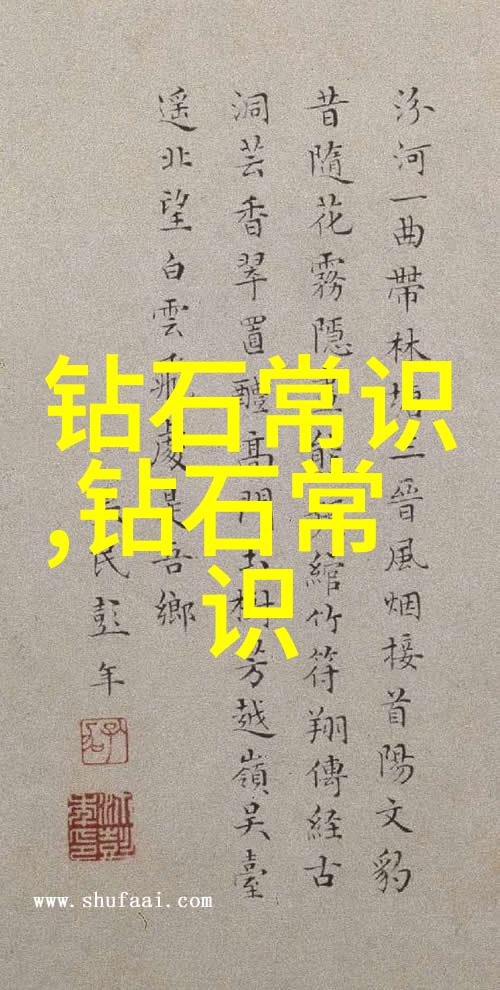 钻石常识
,钻石常
识
汾河一曲帶林塘三晉風烟接首陽文豹
昔隨花霧隱能綰竹符翔傳経古
洞芸香翠置醴高門玉樹芳越嶺吳臺
遥北望白雲飛處是吾鄉
民彭年
www.shufaai.com